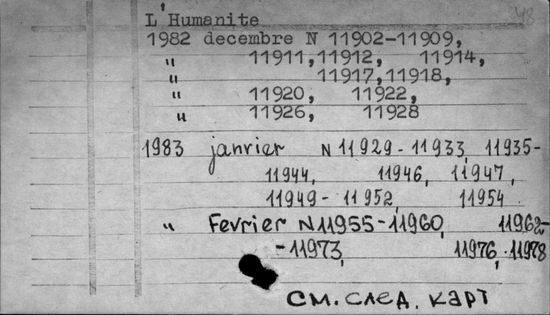 48
L'Humanite
1982 decembre N 11902-11909,
" 11911,11912, 11914,
" 11917,11918,
" 11920, 11922,
" 11926, 11928
1983 janvier N 11929-11933, 11935-
11944, 11946, 11947,
11949- 11952, 11954
" Fevrier N11955-11960, 11962-
-11973, 11976, 11978
см. след. карт